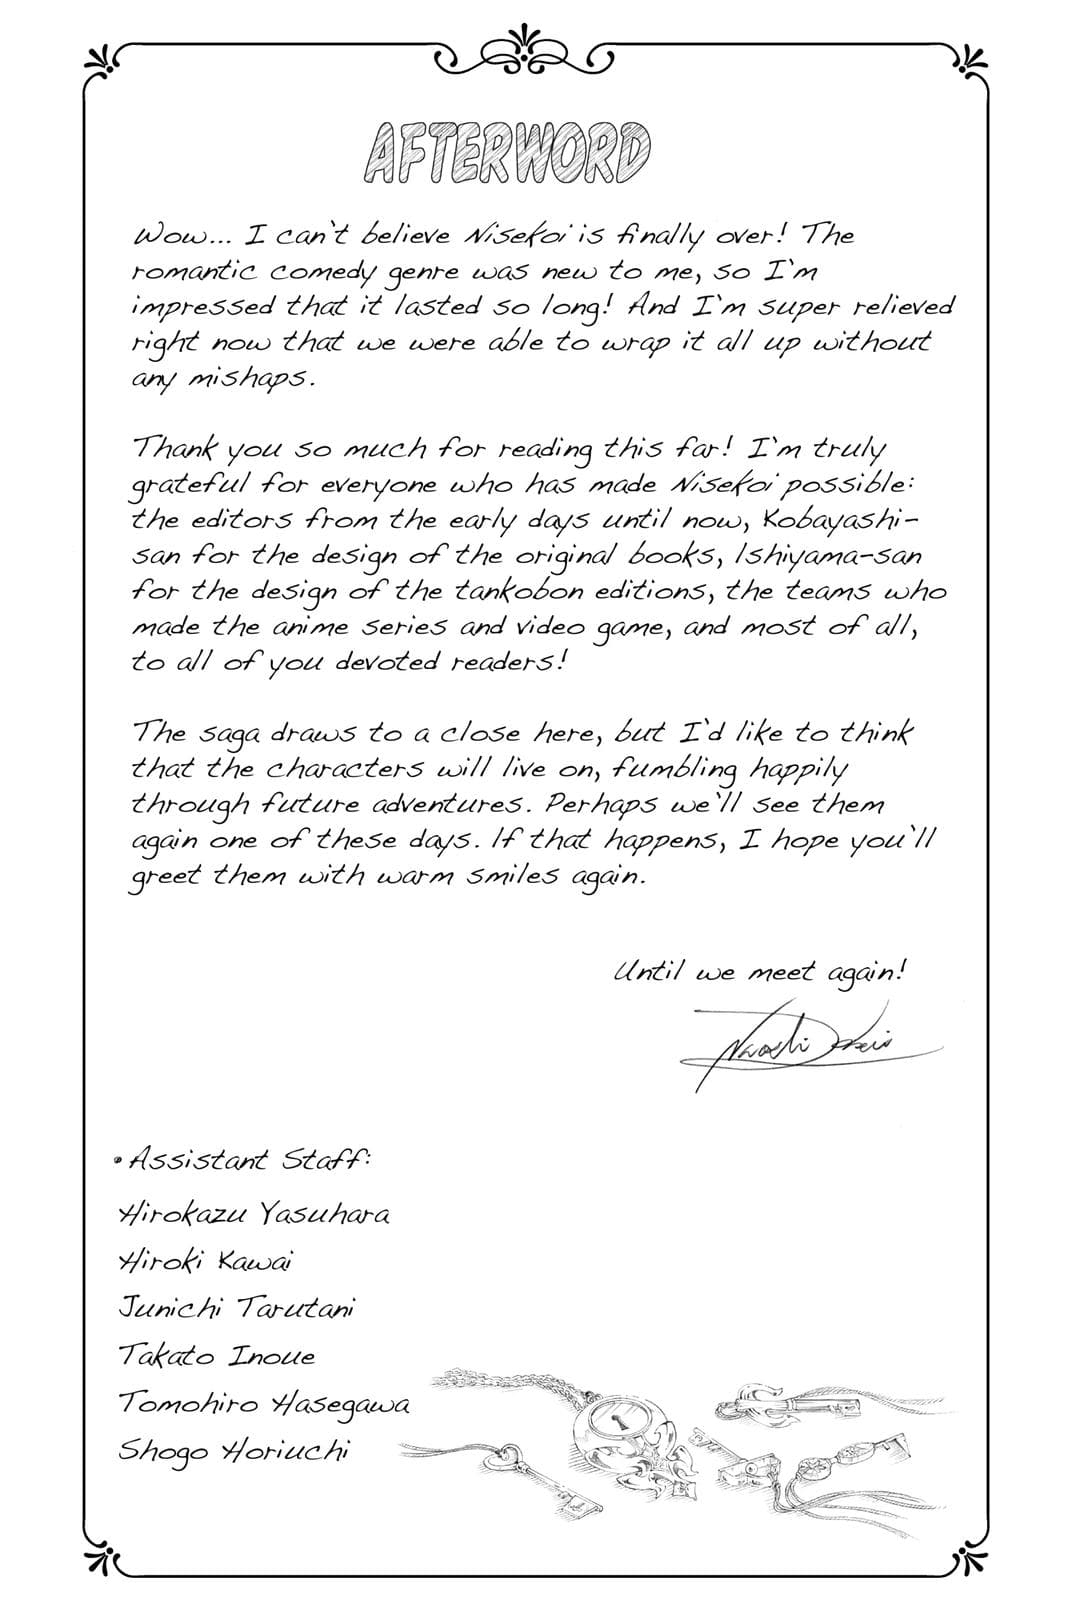 AFTERWORD
Wow... I can't believe Nisekoi is finally over! The
romantic comedy genre was new to me, so I'm
impressed that it lasted so long! And I'm super relieved
right now that we were able to wrap it all up without
any mishaps.
Thank you so much for reading this far! I'm truly
grateful for everyone who has made Nisekoi possible:
the editors from the early days until now, Kobayashi-
san for the design of the original books, Ishiyama-san
for the design of the tankobon editions, the teams who
made the anime series and video game, and most of all,
to all of you devoted readers!
The saga draws to a close here, but I'd like to think
that the characters will live on, fumbling happily
through future adventures. Perhaps we'll see them
again one of these days. If that happens, I hope you'll
greet them with warm smiles again.
Until we meet again!
Naoshi
• Assistant Staff:
Hirokazu Yasuhara
Hiroki Kawai
Junichi Tarutani
Takato Inoue
Tomohiro Hasegawa
Shogo Horiuchi